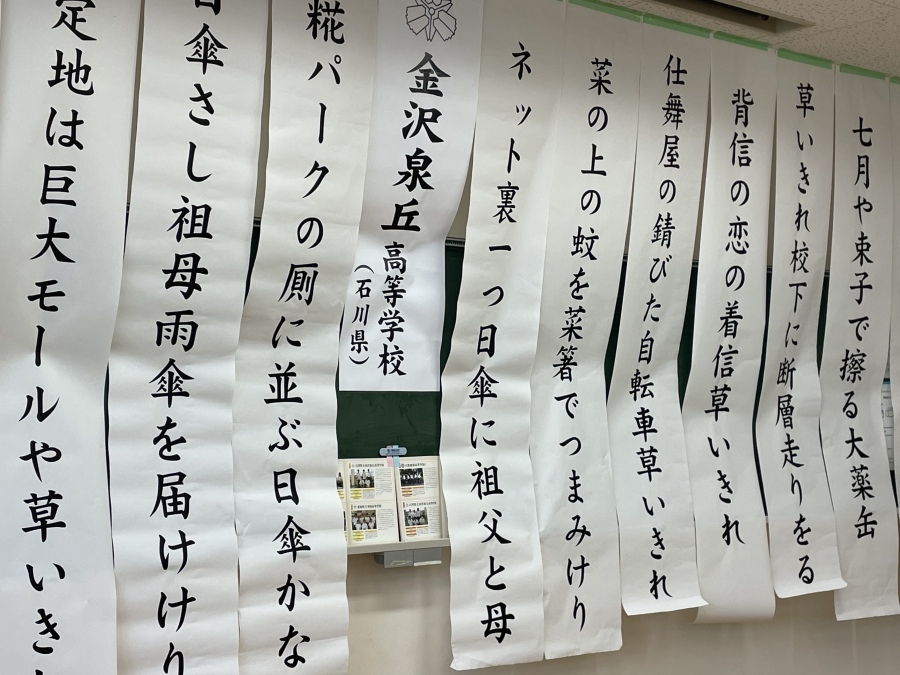 七月や束子で擦る大薬缶
草いきれ校下に断層走りをる
背信の恋の着信草いきれ
仕舞屋の錆びた自転車草いきれ
菜の上の蚊を菜箸でつまみけり
ネット裏一つ日傘に祖父と母
金沢泉丘高等学校
(石川県)
糀パークの厠に並ぶ日傘かな
日傘さし祖母雨傘を届けけり
定地は巨大モールや草いき